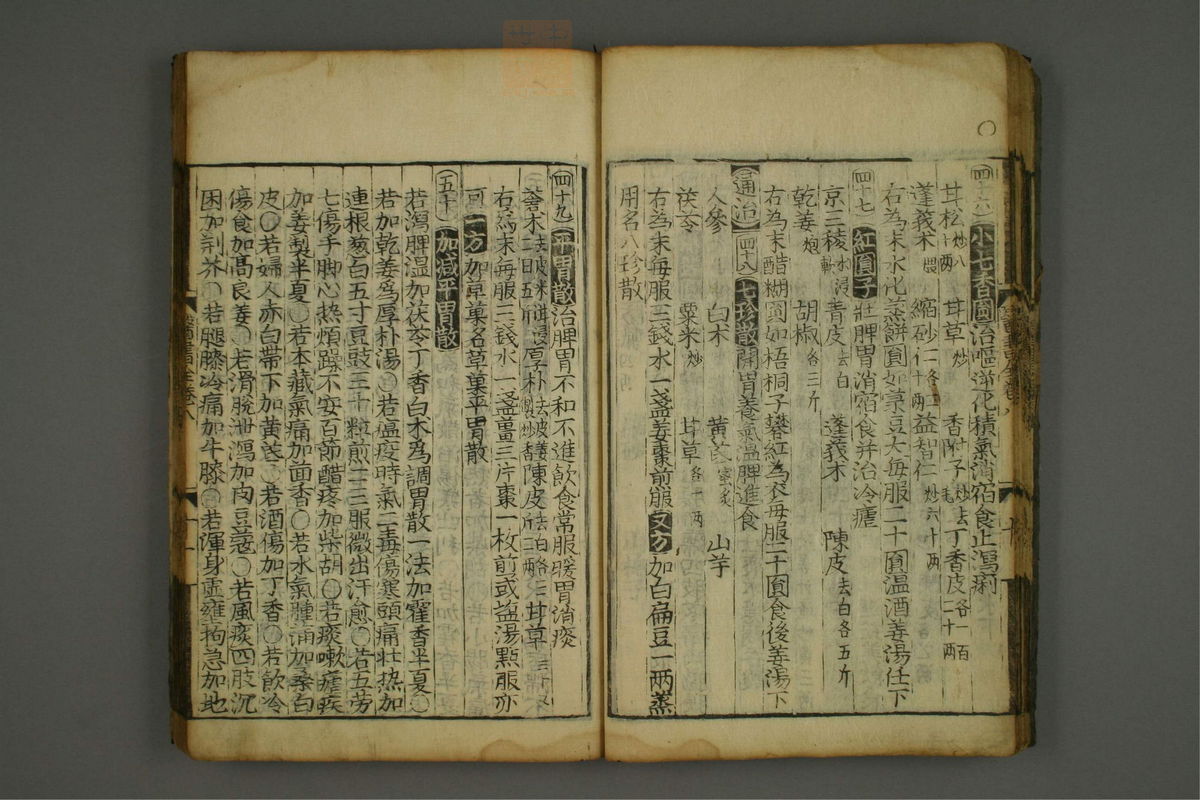 四十六 小七香圓 治嘔逆化積氣消宿食止瀉痢
甘松 炒八十兩 甘草 炒 香附子 炒去毛 丁香皮 各一百二十兩
蓬莪朮 煨 縮砂仁 各二十兩 益智仁 炒六十兩
右為末水化蒸餅圓如菉豆大每服二十圓温酒姜湯任下
四十七 紅圓子 壯脾胃消宿食并治冷瘧
京三稜 水浸軟 青皮 去白 蓬莪朮 陳皮 去白各五斤
乾姜 炮 胡椒 各三斤
右為末醋糊圓如梧桐子礬紅為衣每服二十圓食後姜湯下
通治 四十八 七珍散 開胃養氣温脾進食
人參 白朮 黄芪 蜜炙 山芋
茯苓 粟米 炒 甘草 各一兩
右為末每服三錢水一盞姜棗煎服 又方 加白扁豆一兩蒸
用名八珍散
四十九 平胃散 治脾胃不和不進飲食常服暖胃消痰
蒼朮 去皮米泔浸二日五斤 厚朴 去皮姜製炒香 陳皮 去白各三斤二兩 甘草 三十兩
右為末每服二錢水一盞薑三片棗一枚煎或塩湯點服亦
可 一方 加草菓名草菓平胃散
五十 加減平胃散
若瀉脾温加茯苓丁香白朮為調胃散一法加藿香半夏〇
若加乾姜為厚朴湯〇若瘟疫時氣二毒傷寒頭痛壯熱加
連根葱白五寸豆豉三十粒煎二三服微出汗愈〇若五劳
七傷手脚心热煩躁不安百節醋疼加柴胡〇若痰嗽瘧疾
加姜製半夏〇若本藏氣痛加茴香〇若水氣腫滿加桑白
皮〇若婦人赤白帶下加黄芪〇若酒傷加丁香〇若飲冷
傷食加高良姜〇若滑脱泄瀉加肉豆蔻〇若風痰四肢沉
困加荆芥〇若腿膝冷痛加牛膝〇若渾身虛壅拘急加地